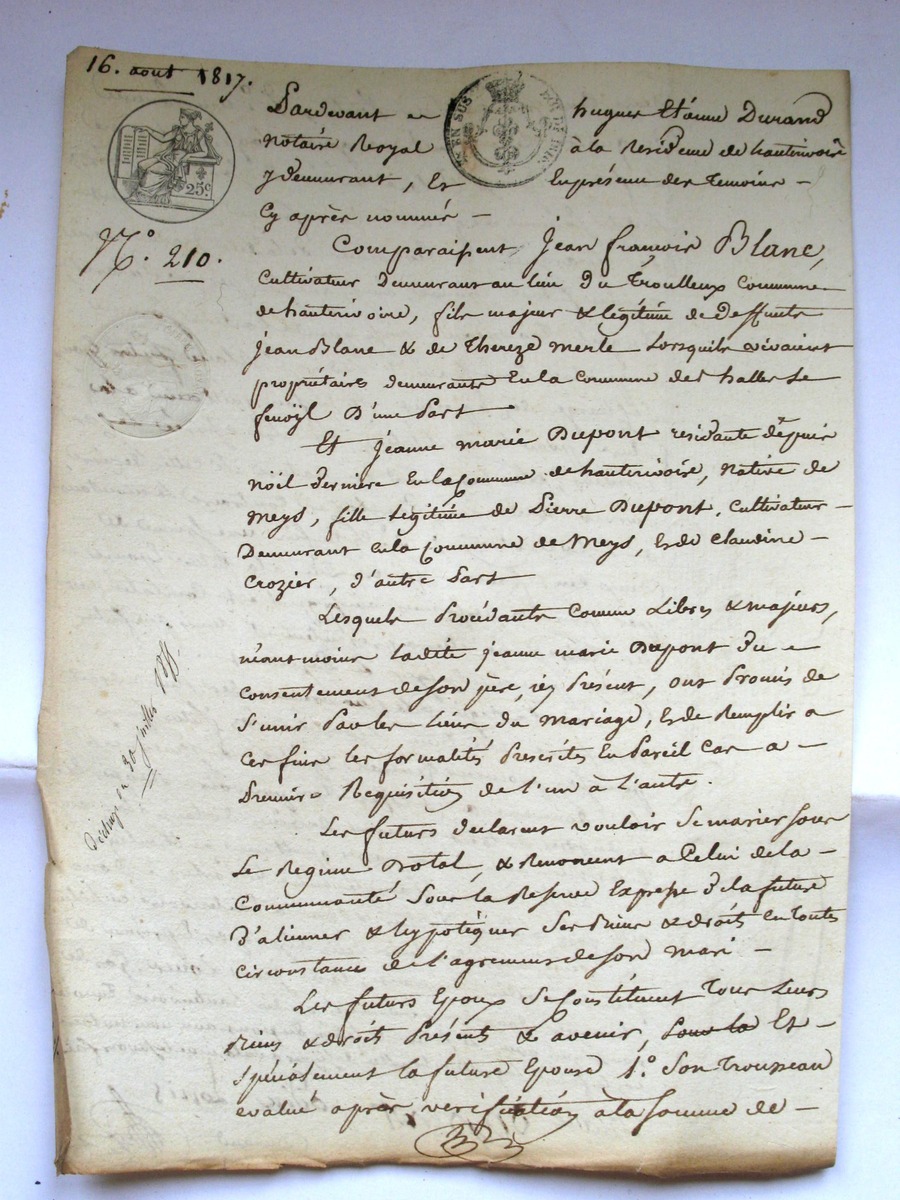 16. aout 1817.
Pardevant hugues Etienne Durand
notaire Royal à la Residence de hauterivoire
y demeurant, Et En présence des temoins –
Cy après nommés –
25c
EN SUS
N.° 210.
Comparaissent, Jean françois Blanc,
Cultivateur demeurant au lieu du Troulleux Commune –
de hauterivoire, fils majeur & légitime de deffunts
Jean Blanc & de Thereze Merle Lorsquils vivaient
propriétaires demeurants En la Commune des halles Le
fenoÿl D'une Part
Et Jeanne marie Dupont residante depuis
Nöil dernière En la Commune de hauterivoire, native de
Meys, fille Légitime de Pierre Dupont, Cultivateur –
Demeurant En la Commune de Meys, & de Claudine –
Crozier, d'autre Part
Lesquels Procédants Comme Libres & majeurs,
néantmoins Ladite jeanne marie Dupont du –
Consentement de son père, icy Présent, ont Promis de
S'unir Par les liens du Mariage, & de Remplir a
Ces fins les formalités Prescrites En Pareil Cas a –
Premiere Requisition de l'un à l'autre.
Les futurs declarent vouloir Se marier sous
Le Regime Dotal, & Renoncent a Celui de la –
Communauté Sous la Reserve Expresse de la future
D'aliener & hypotéquer Ses Biens & droits En toutes
Circonstances de l'agrement de son mari –
Les futurs Epoux Se Constituent Tous Leurs
Biens & droits Présents & avenir, Sous la Et –
Spécialement la future Epouse 1.° Son Trousseau
evalué après verification à la Somme de –
30 juillet